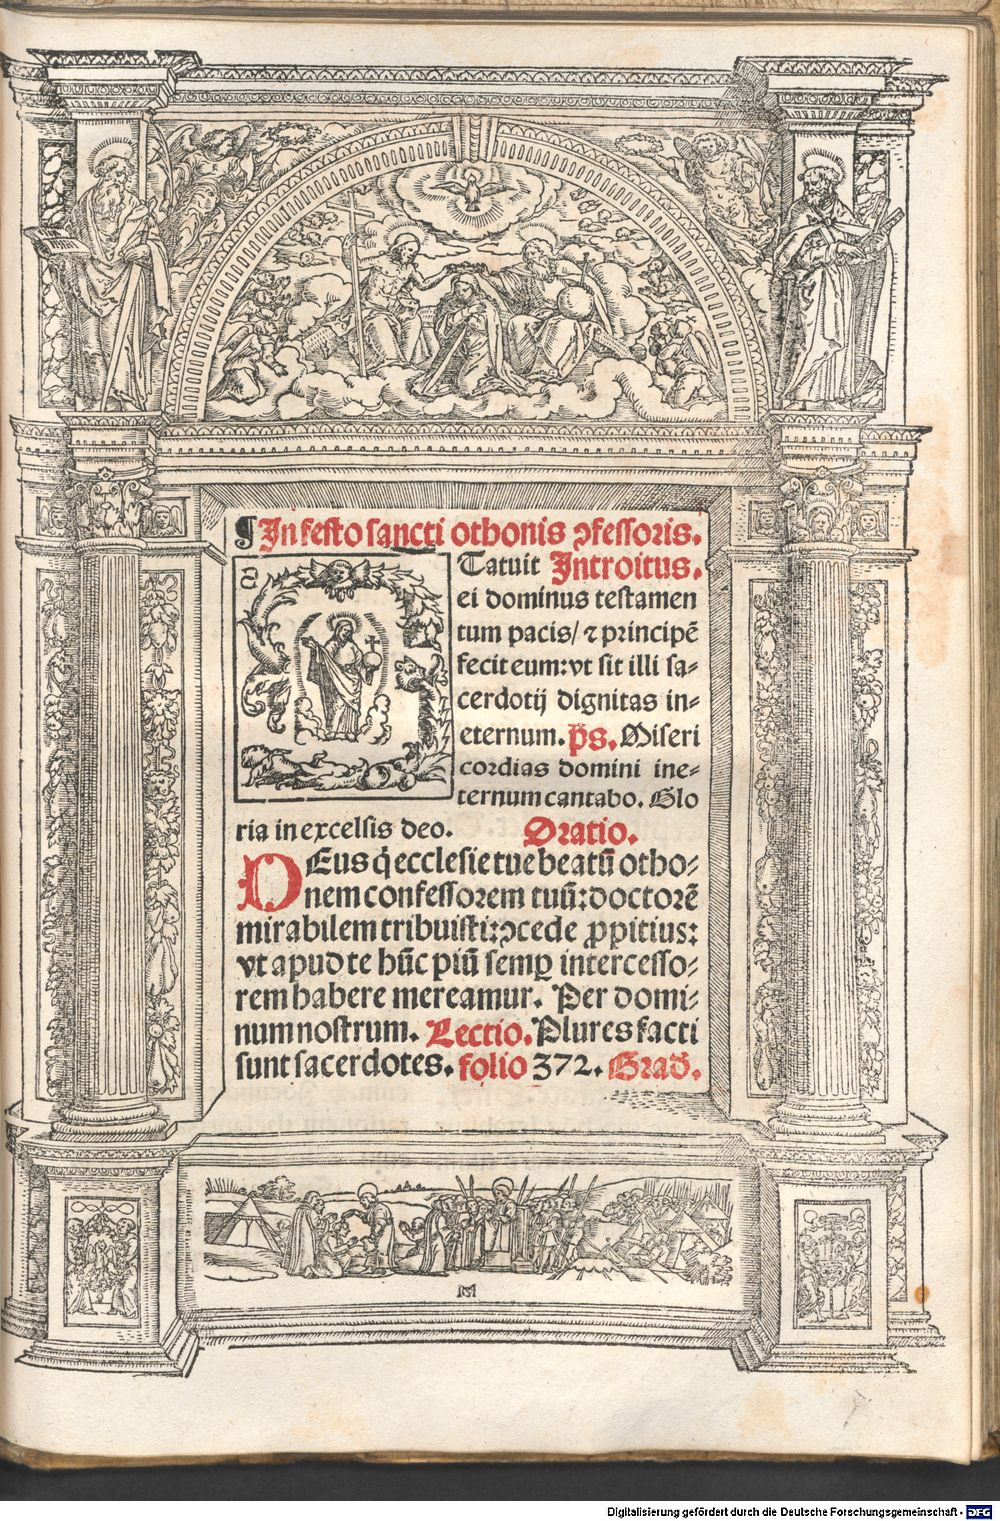 ¶ In festo sancti othonis ꝯfessoris.
Tatuit Introitus.
ei dominus testamen
tum pacis/ ⁊ principē
fecit eum: vt sit illi sa⸗
cerdotij dignitas in⸗
eternum. p̄s. Miseri
cordias domini ine⸗
ternum cantabo. Glo
ria in excelsis deo. Oratio.
DEus q̇ ecclesie tue beatū otho⸗
nem confessorem tuū: doctorē
mirabilem tribuisti: ꝯcede ꝓpitius:
vt apud te hūc piū semꝑ intercesso⸗
rem habere mereamur. Per domi⸗
num nostrum. Lectio. Plures facti
sunt sacerdotes. folio 372. Grad̄.
Digitalisierung gefördert durch die Deutsche Forschungsgemeinschaft - DFG